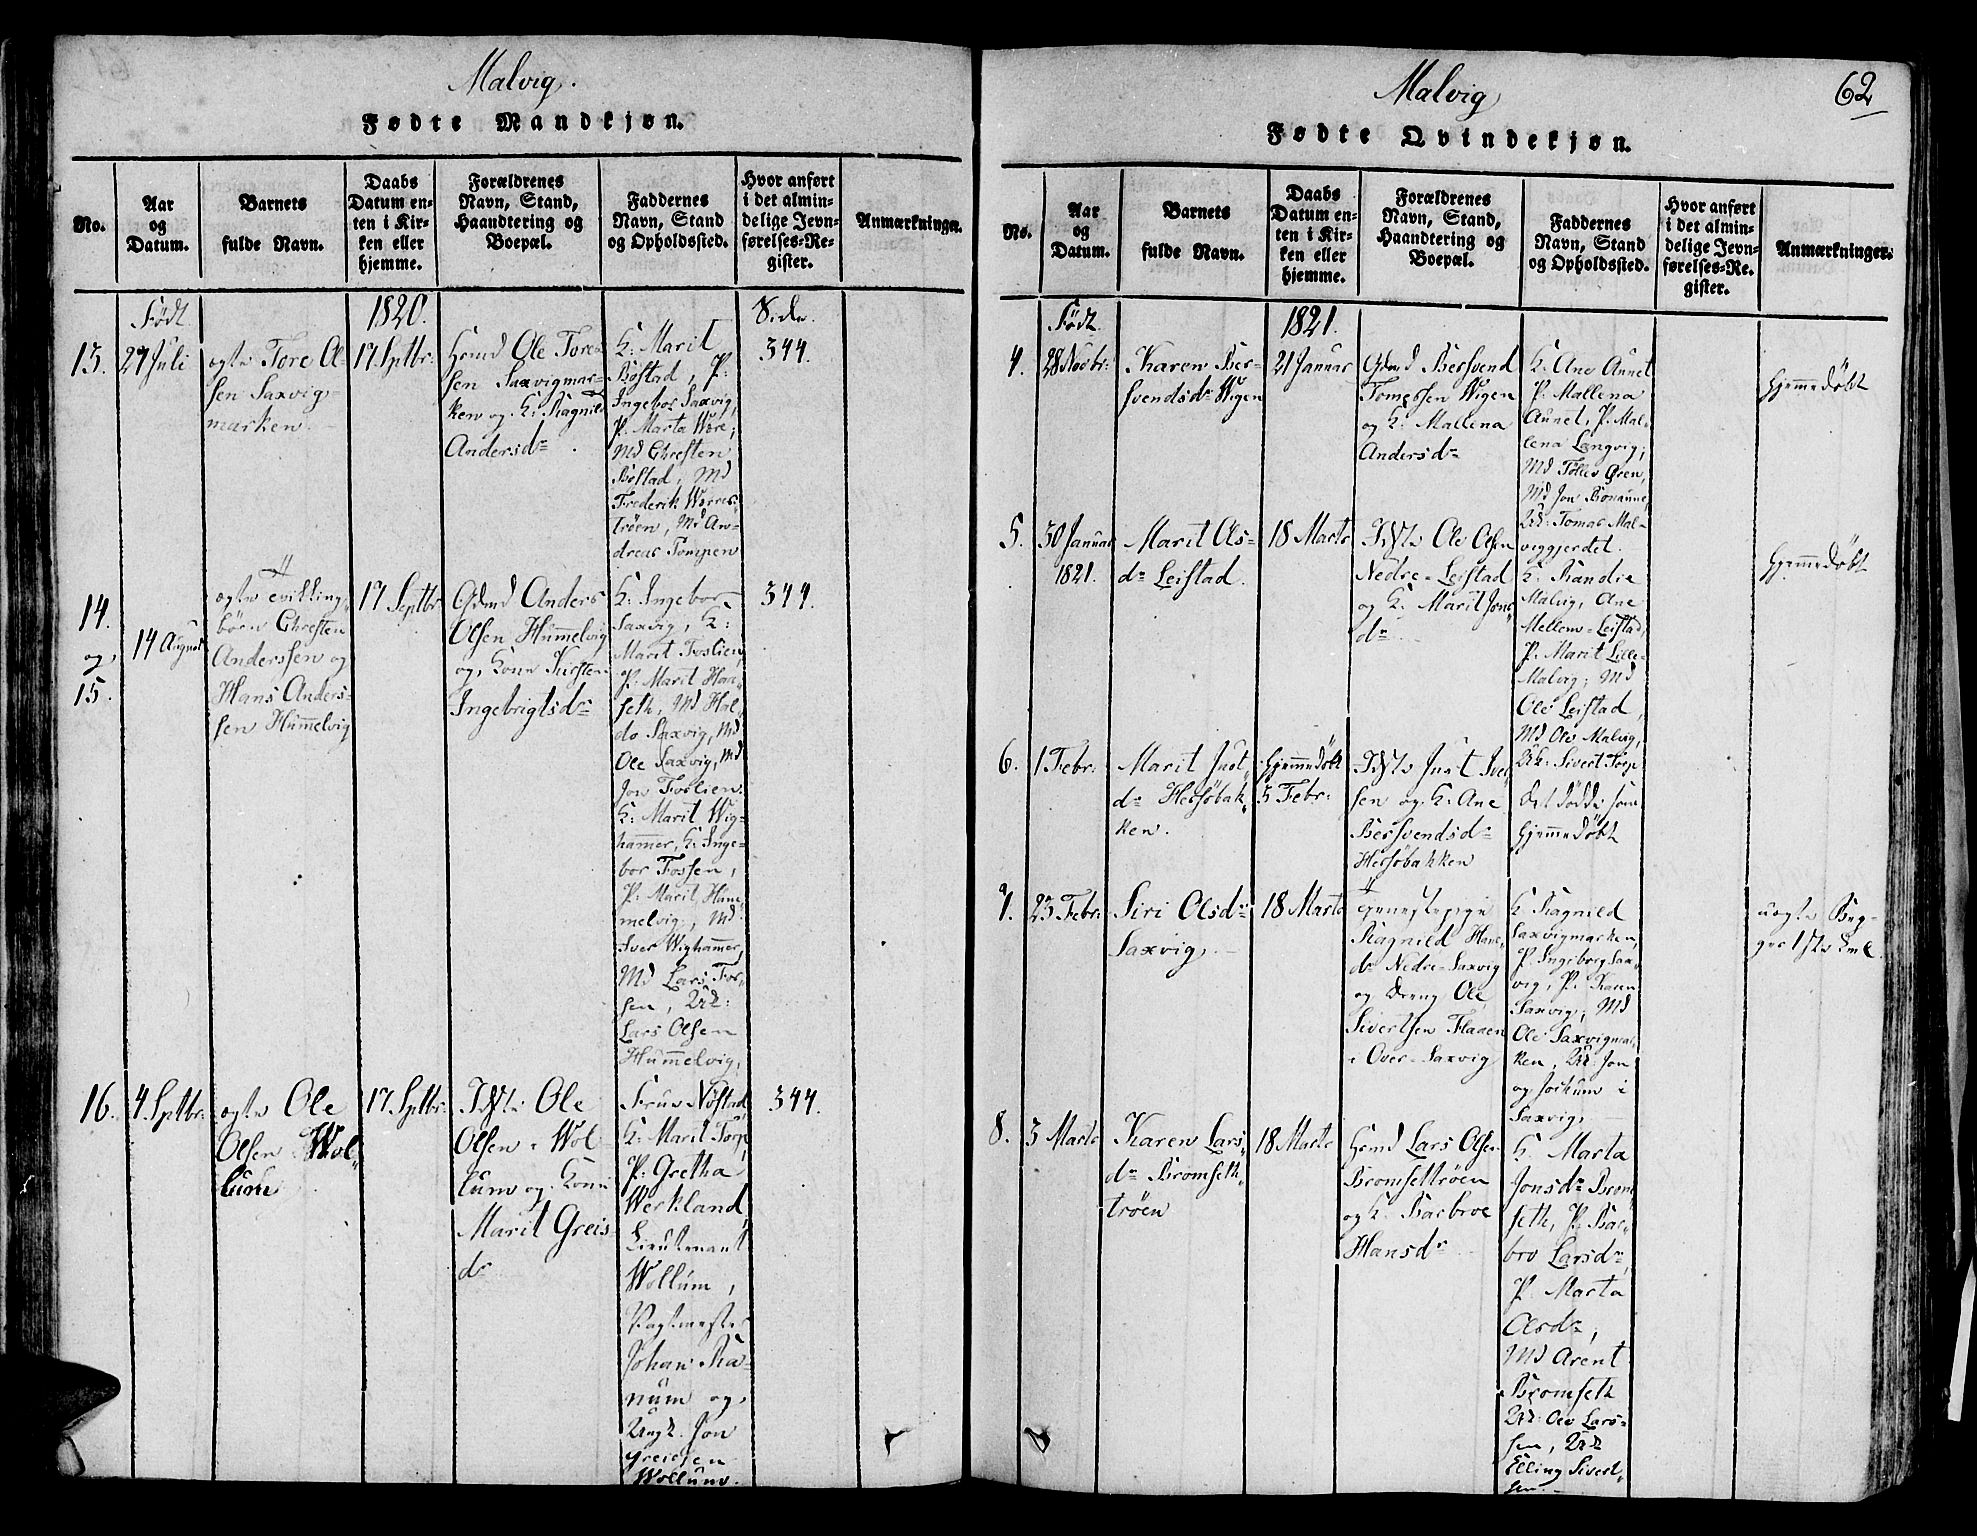 Malvig.
Fødte Mandkjøn.
No.
Aar
og
Datum.
Barnets
fulde Navn.
Daabs
Datum en-
ten i Kir-
ken eller
hjemme.
Forældrenes
Navn, Stand,
Haandtering og
Boepæl.
Faddernes
Navn, Stand
og Opholdssted.
Hvor anført
i det almin-
delige Jevn-
førelses-Re-
gister.
Anmærkninger.
Født
1820.
Side.
13.
27 Juli
ægte Tore Ol-
sen Saxvig-
marken.
17 Septbr:
Hmd Ole Tore-
sen Saxvigmar-
ken og K: Ragnild
Andersdr
K: Marit
Bøstad, P:
Ingebor Saxvig,
P. Marta Wære,
Md Chresten
Bøstad, Md
Frederik Werres-
trøen, Md An-
dreas Pompen
344.
14.
og
15.
14 August
ægte tvilling-
børn Chresten
Anderssen og
Hans Anders-
sen Hummelvig
17 Septbr
Gdmd Anders
Olsen Hummelvig
og Kone Kirsten
Ingebrigtsdr
K: Ingebor
Saxvig, K:
Marit Foslien,
P: Marit Han-
seth, Md Hal-
do Saxvig, Md
Ole Saxvig, Md
Jon Foslien.
K: Marit Wig-
hammer, K: Inge-
bor Fossen,
P: Marit Hum-
melvig, Md
Iver Wighammer,
Md Lars Fos-
sen,
Lars Olsen
Hummelvig,
344.
16.
4 Septbr:
ægte Ole
Olsen Wol-
lum
17 Septbr:
Ole
Olsen Wol-
lum og Kone
Marit Greis
dr
Frue Nøstad
K: Marit Torp
P: Gretha
Werkland
Lieutenant
Wollum,
Vagtmester
Johan Ra-
num og
Ungk. Jon
Greiesen
Wollum.
344.
Malvig
62
Fødte Qvindekjøn.
No.
Aar
og
Datum.
Barnets
fulde Navn.
Daabs
Datum en-
ten i Kir-
ken eller
hjemme.
Forældrenes
Navn, Stand,
Haandtering og
Boepæl.
Faddernes
Navn, Stand
og Opholdssted.
Hvor anført
i det almin-
delige Jevn-
førelses-Re-
gister.
Anmærkninger.
Født.
1821.
4.
28 Novbr:
Karen Ber-
svendsdr Wigen
21 Januar
Gdmd Bersvend
Tomessen Wigen
og K: Mallena
Andersdr
K: Ane Aunet
P. Mallena
Aunet, P. Mal-
lena Langvig,
Md Tølles Øren,
Md Jon Bonaune,
Tomas Mal-
viggjerdet.
Hjemmedøbt
5.
30 Januar
1821.
Marit Ols-
dr Leistad.
18 Marts
Ole Olsen
Nedre-Leistad
og K: Marit Jons
dr
K: Randie
Malvig, Ane
Mellem-Leistad,
P. Marit Lille-
Malvig; Md
Ole Leistad,
Md Ole Malvig,
Sivert Torp
Hjemmedøbt
6.
1 Febr:
Marit Just-
dr Hersøbak-
ken.
Hjemmedøbt
5 Febr:
Just Iver
sen og K: Ane
Bersvendsdr
Hersøbakken
Det døde som
Hjemmedøbt
7.
23 Febr:
Siri Olsdr
Saxvig.
18 Marts
Tjenestepige
Ragnild Hans-
dr Nedre-Saxvig
og Dreng Ole
Sivertsen Flaaen
i Over-Saxvig
K Ragnild
Saxvigmarken,
P. Ingeborg Sax-
vig, P. Karen
Saxvig, Md
Ole Saxvigmar-
ken, Jon
og Jochum i
Saxvig,
uægte Beg-
ges 1ste
8.
3 Marts
Karen Lars-
dr Bromseth-
trøen
18 Marts
Hmd Lars Olsen
Bromsettrøen
og K: Barbroe
Hansdr
K. Marta
Jonsdr Brom-
seth, P. Bar-
bro Larsdr,
P. Marta
Olsdr,
Md Arent
Bromseth
Ole Lars-
sen,
Elling Sivert-
sen.